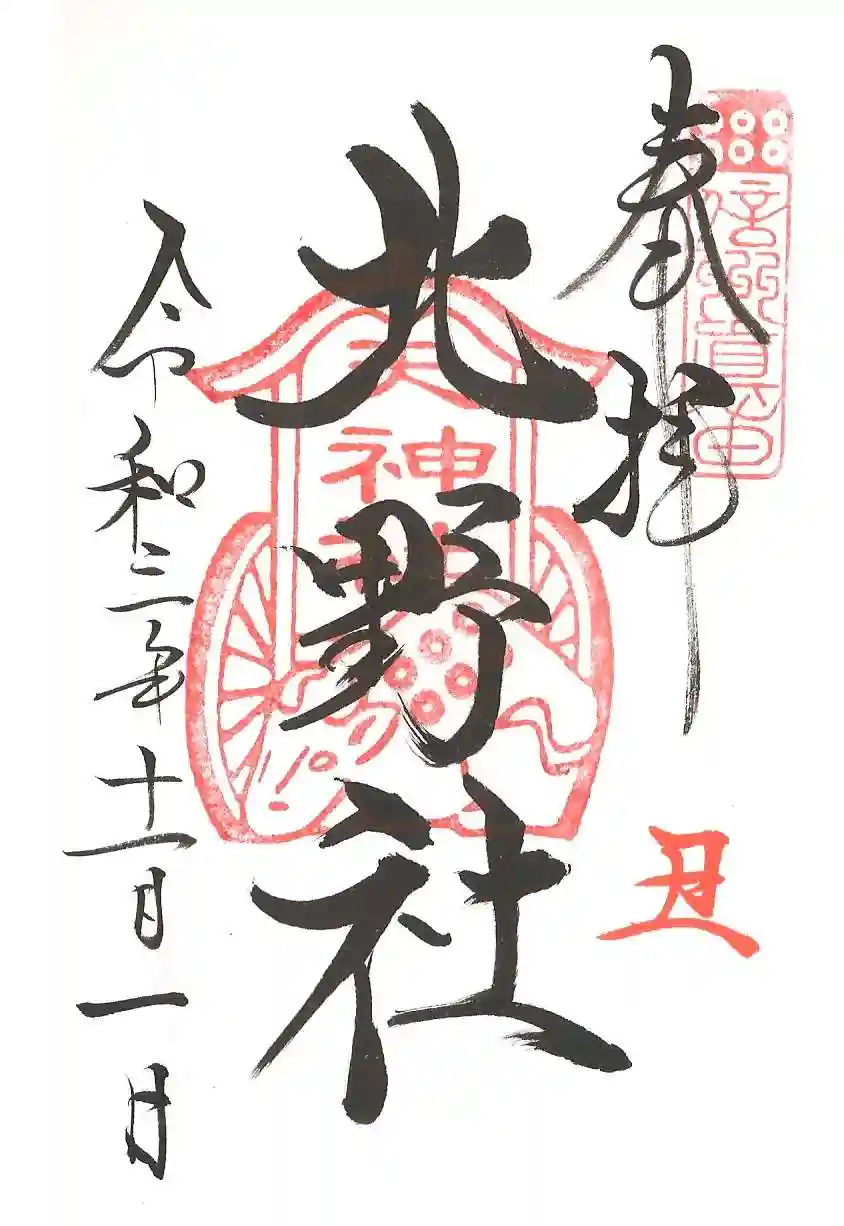 信州真田
奉拝
丑
北野社
天神
令和三年十一月一日